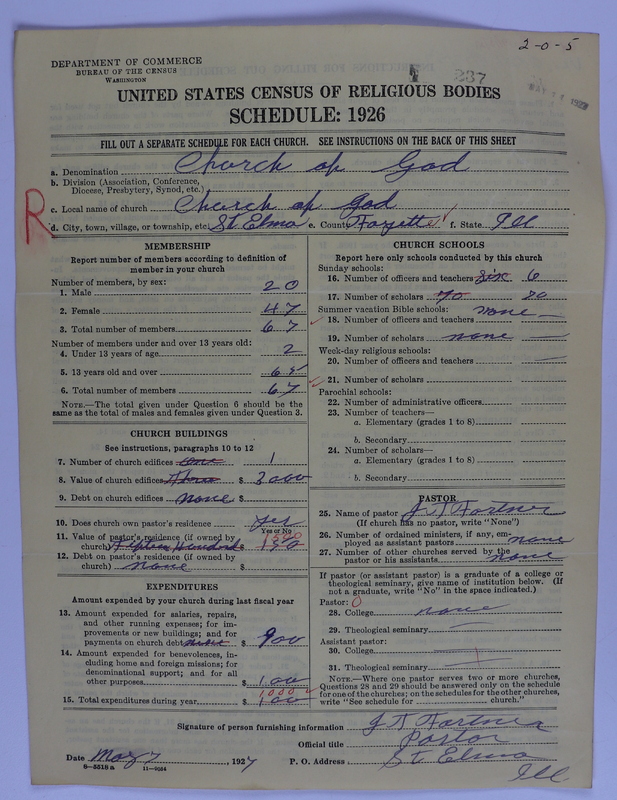 2-0-5
DEPARTMENT OF COMMERCE
BUREAU OF THE CENSUS
WASHINGTON
237
UNITED STATES CENSUS OF RELIGIOUS BODIES
SCHEDULE: 1926
FILL OUT A SEPARATE SCHEDULE FOR EACH CHURCH. SEE INSTRUCTIONS ON THE BACK OF THIS SHEET
R
a. Denomination Church of God
b. Division (Association, Conference,
Diocese, Presbytery, Synod, etc.)
c. Local name of church Church of God
d. City, town, village, or township, etc. St Elmo e. County Fayette f. State Ill
MEMBERSHIP
Report number of members according to definition of
member in your church
Number of members, by sex:
1. Male 20
2. Female 47
3. Total number of members 67
Number of members under and over 13 years old:
4. Under 13 years of age 2
5. 13 years old and over 65
6. Total number of members 67
NOTE.—The total given under Question 6 should be the
same as the total of males and females given under Question 3.
CHURCH BUILDINGS
See instructions, paragraphs 10 to 12
7. Number of church edifices one 1
8. Value of church edifices $ 3000
9. Debt on church edifices none $
10. Does church own pastor's residence yes
Yes or No
11. Value of pastor's residence (if owned by
church) Fifteen Hundred $ 1500
12. Debt on pastor's residence (if owned by
church) none $
EXPENDITURES
Amount expended by your church during last fiscal year
13. Amount expended for salaries, repairs,
and other running expenses; for im-
provements or new buildings; and for
payments on church debt $ 900
14. Amount expended for benevolences, in-
cluding home and foreign missions; for
denominational support; and for all
other purposes $ 100
15. Total expenditures during year $ 1000
CHURCH SCHOOLS
Report here only schools conducted by this church
Sunday schools:
16. Number of officers and teachers six 6
17. Number of scholars 70
Summer vacation Bible schools:
18. Number of officers and teachers none
19. Number of scholars none
Week-day religious schools:
20. Number of officers and teachers
21. Number of scholars
Parochial schools:
22. Number of administrative officers
23. Number of teachers—
a. Elementary (grades 1 to 8)
b. Secondary
24. Number of scholars—
a. Elementary (grades 1 to 8)
b. Secondary
PASTOR
25. Name of pastor J T Fortner
(If church has no pastor, write "None")
26. Number of ordained ministers, if any, em-
ployed as assistant pastors none
27. Number of other churches served by the
pastor or his assistants none
If pastor (or assistant pastor) is a graduate of a college or
theological seminary, give name of institution below. (If
not a graduate, write "No" in the space indicated.)
Pastor: 0
28. College none
29. Theological seminary
Assistant pastor:
30. College
31. Theological seminary
NOTE.—Where one pastor serves two or more churches,
Questions 28 and 29 should be answered only on the schedule
for one of the churches; on the schedules for the other churches,
write "See schedule for church."
Signature of person furnishing information J T Fortner
Official title Pastor
Date May 7, 1927 P. O. Address St Elmo
Ill
8—5518 a 11—9084